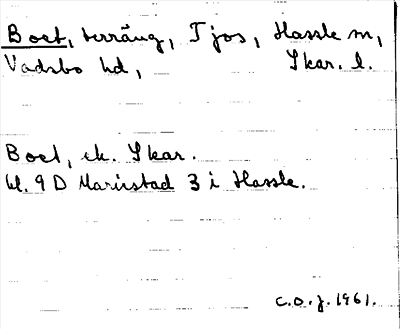 Boet, terräng, Tjos, Hassle sn,
Vadsbo hd, Skar. l.
Boet, ek. Skar.
bl. 9 D Mariestad 3 i Hassle.
C.O.J. 1961.